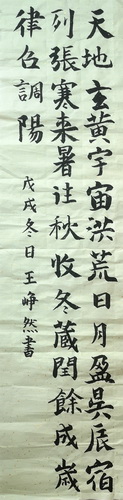 天地玄黃宇宙洪荒日月盈昃辰宿
列張寒来暑往秋收冬藏閏餘成歲
律召調陽
戊戌冬日王崢然書